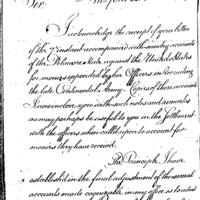 Sir
I acknowledge the receipt of your letter
of the 7 instant accompanied with sundry accounts
of the Delaware State against the United States
for monies expended by her Officers in Recruiting
the late Continental Army - Copies of these accounts
I now inclose you with such notes and remarks
as may perhaps be useful to you in the Settlement
with the officers when called upon to account for
monies they have received.
The Principle I have
established in the final adjustment of the several
accounts made cognizable in my office is to extend